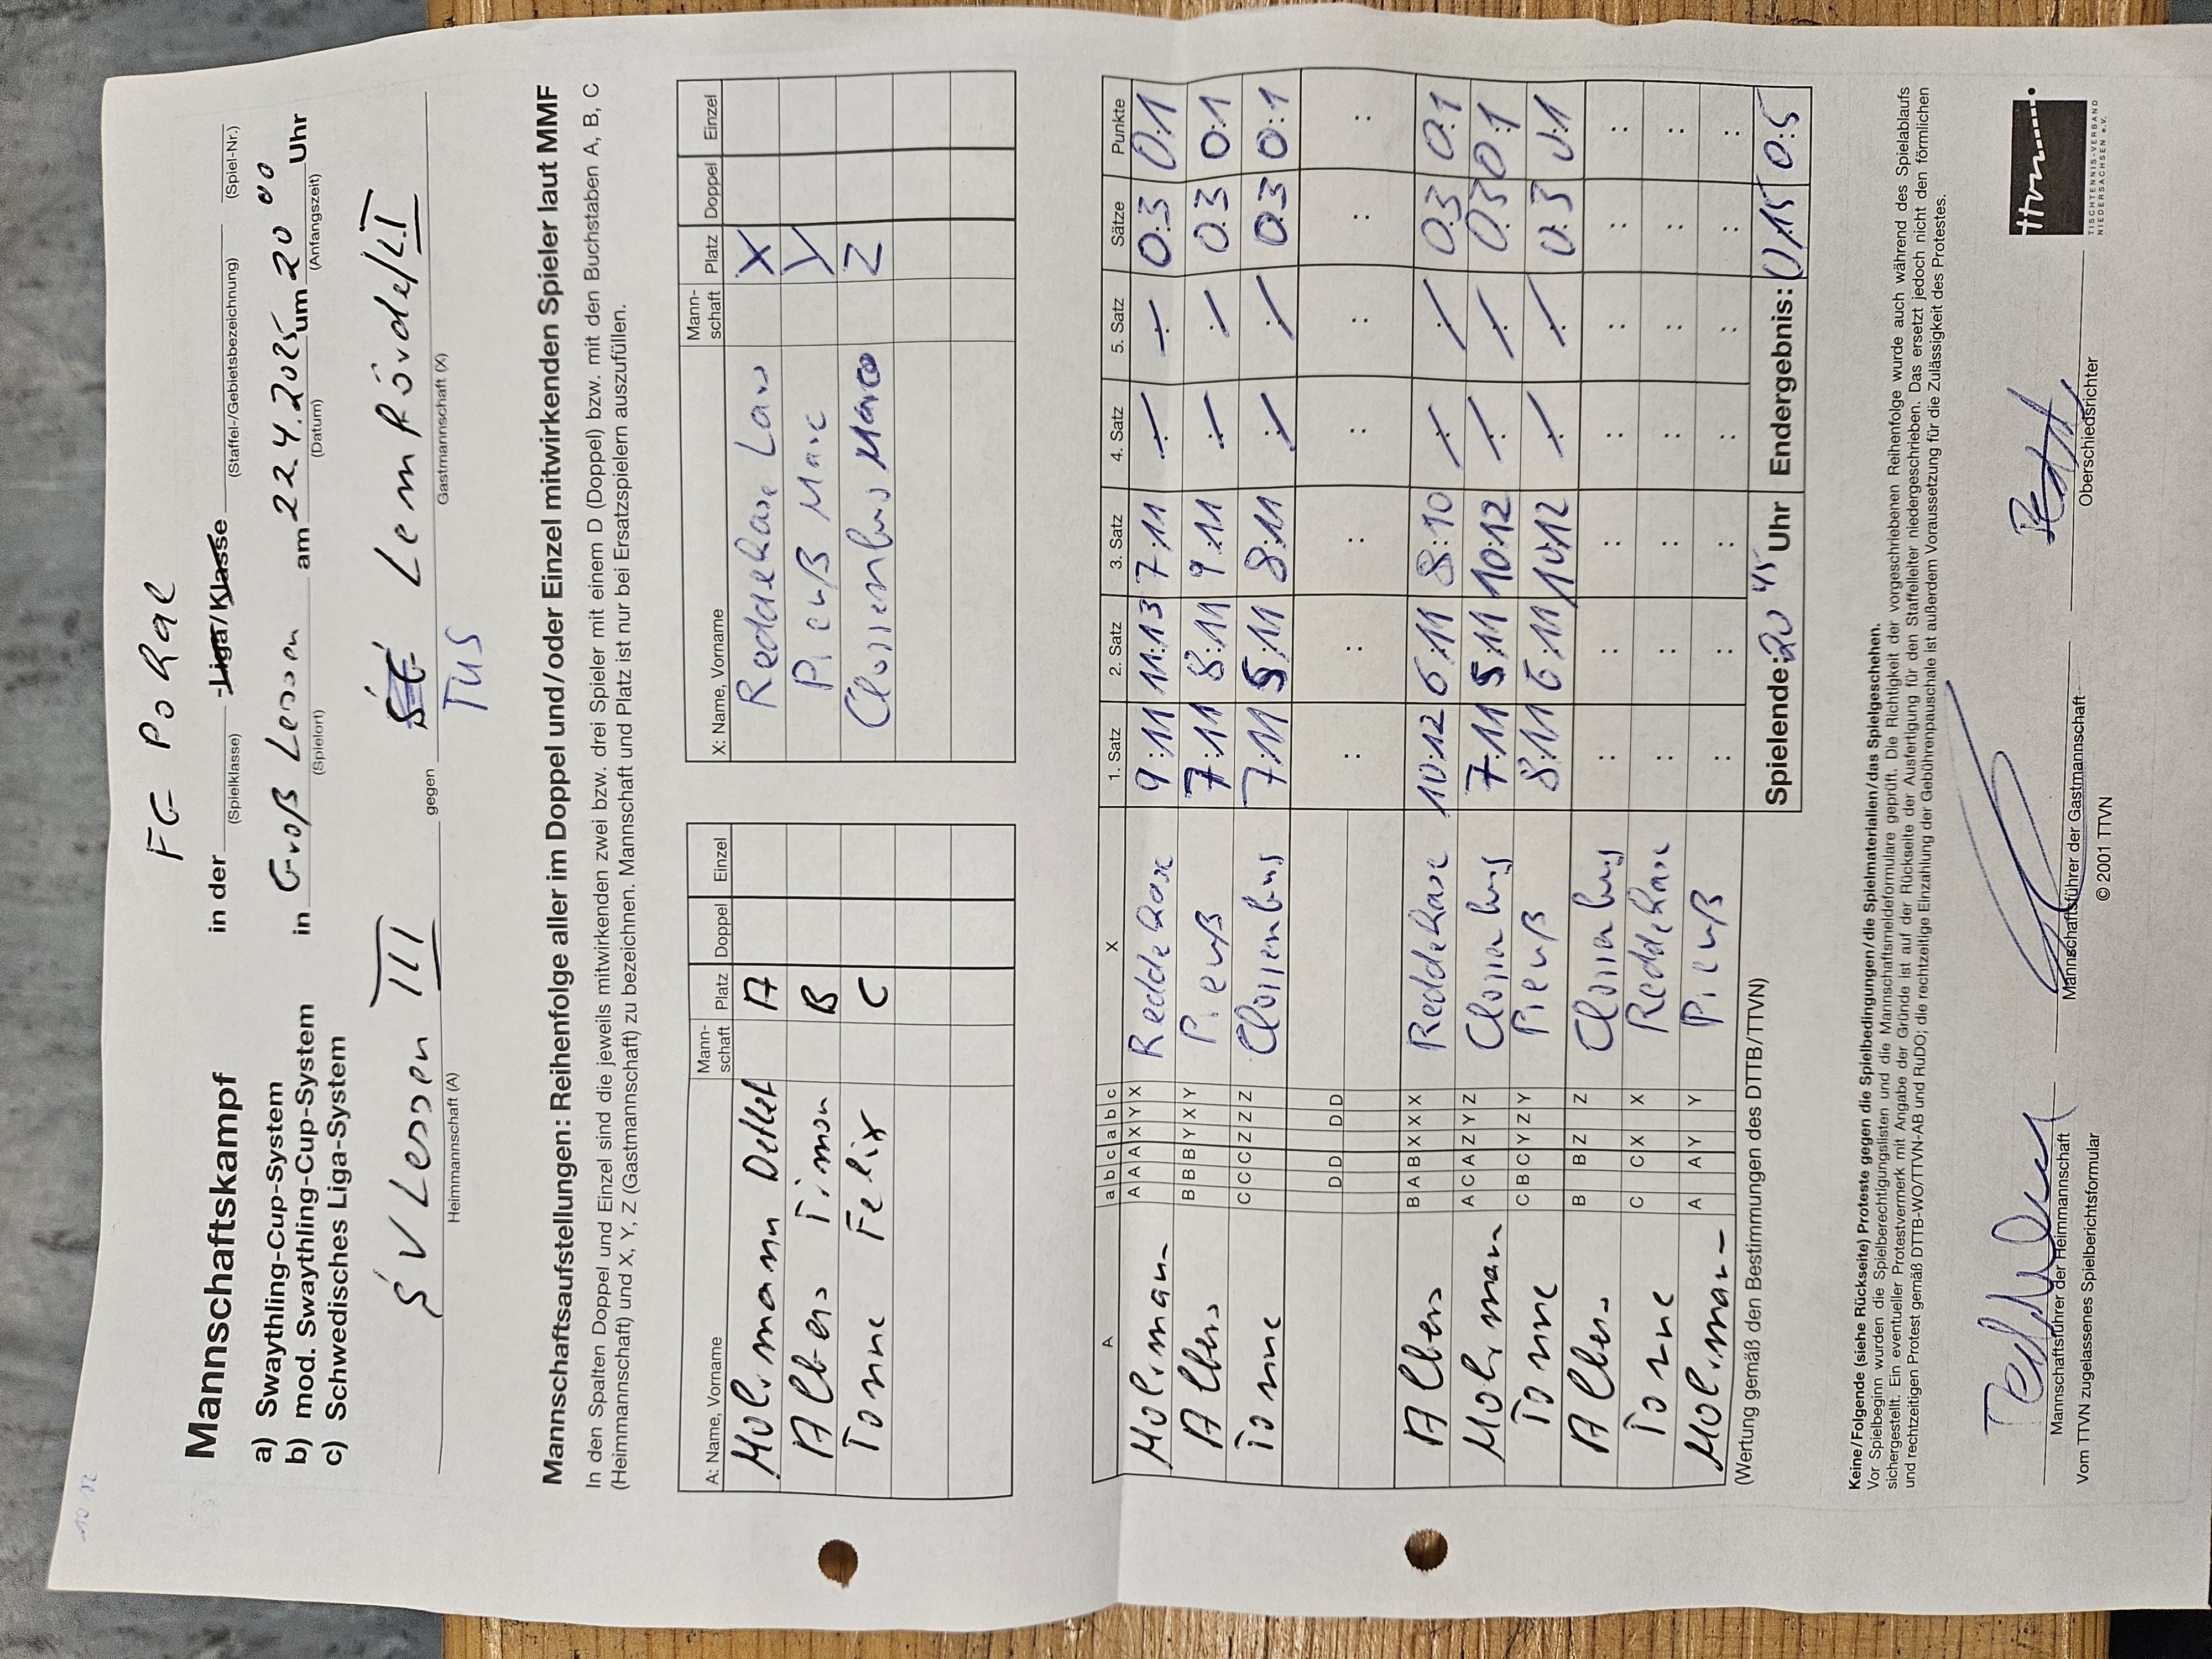 FC Pokal
Mannschaftskampf
in der (Spielklasse) -Liga/Klasse (Staffel-/Gebietsbezeichnung) (Spiel-Nr.)
a) Swaythling-Cup-System
b) mod. Swaythling-Cup-System
c) Schwedisches Liga-System
in Groß Lessen am 22.4.2025 um 20 00 Uhr
(Spielort) (Datum) (Anfangszeit)
SV Lessen III gegen Lemförde/
TUS
Heimmannschaft (A) Gastmannschaft (X)
Mannschaftsaufstellungen: Reihenfolge aller im Doppel und/oder Einzel mitwirkenden Spieler laut MMF
In den Spalten Doppel und Einzel sind die jeweils mitwirkenden zwei bzw. drei Spieler mit einem D (Doppel) bzw. mit den Buchstaben A, B, C
(Heimmannschaft) und X, Y, Z (Gastmannschaft) zu bezeichnen. Mannschaft und Platz ist nur bei Ersatzspielern auszufüllen.
A: Name, Vorname Mann-schaft Platz Doppel Einzel X: Name, Vorname Mann-schaft Platz Doppel Einzel
Mohrmann Detlef A Reddehase Lars X
Albers Timon B Pieuß Marc Y
Tonne Felix C Clossenbus Marco Z
A a b c a b c X 1. Satz 2. Satz 3. Satz 4. Satz 5. Satz Sätze Punkte
A A A X Y X Reddehase 9:11 11:13 7:11 0:3 0:1
Albers B B B Y X Y Pieuß 7:11 8:11 9:11 0:3 0:1
Tonne C C C Z Z Z Clossenbus 7:11 5:11 8:11 0:3 0:1
: : : : : : :
D D D D
Albers B A B X X X Reddehase 10:12 6:11 8:10 0:3 0:1
A C A Z Y Z 7:11 5:11 10:12 0:3 0:1
Tonne C B C Y Z Y Pieuß 8:11 6:11 10:12 0:3 0:1
Albers B B Z Z : : : : : : :
Tonne C C X X Reddehase : : : : : : :
A A Y Y Pieuß : : : : : : :
(Wertung gemäß den Bestimmungen des DTTB/TTVN) Spielende: 20 45 Uhr Endergebnis: 0:15 0:5
Keine/Folgende (siehe Rückseite) Proteste gegen die Spielbedingungen/die Spielmaterialien/das Spielgeschehen.
Vor Spielbeginn wurden die Spielberechtigungslisten und die Mannschaftsmeldeformulare geprüft. Die Richtigkeit der vorgeschriebenen Reihenfolge wurde auch während des Spielablaufs
sichergestellt. Ein eventueller Protestvermerk mit Angabe der Gründe ist auf der Rückseite der Ausfertigung für den Staffelleiter niedergeschrieben. Das ersetzt jedoch nicht den förmlichen
und rechtzeitigen Protest gemäß DTTB-WO/TTVN-AB und RuDO; die rechtzeitige Einzahlung der Gebührenpauschale ist außerdem Voraussetzung für die Zulässigkeit des Protestes.
Mannschaftsführer der Heimmannschaft Mannschaftsführer der Gastmannschaft Oberschiedsrichter
Vom TTVN zugelassenes Spielberichtsformular © 2001 TTVN
ttvn
TISCHTENNIS-VERBAND
NIEDERSACHSEN e.V.